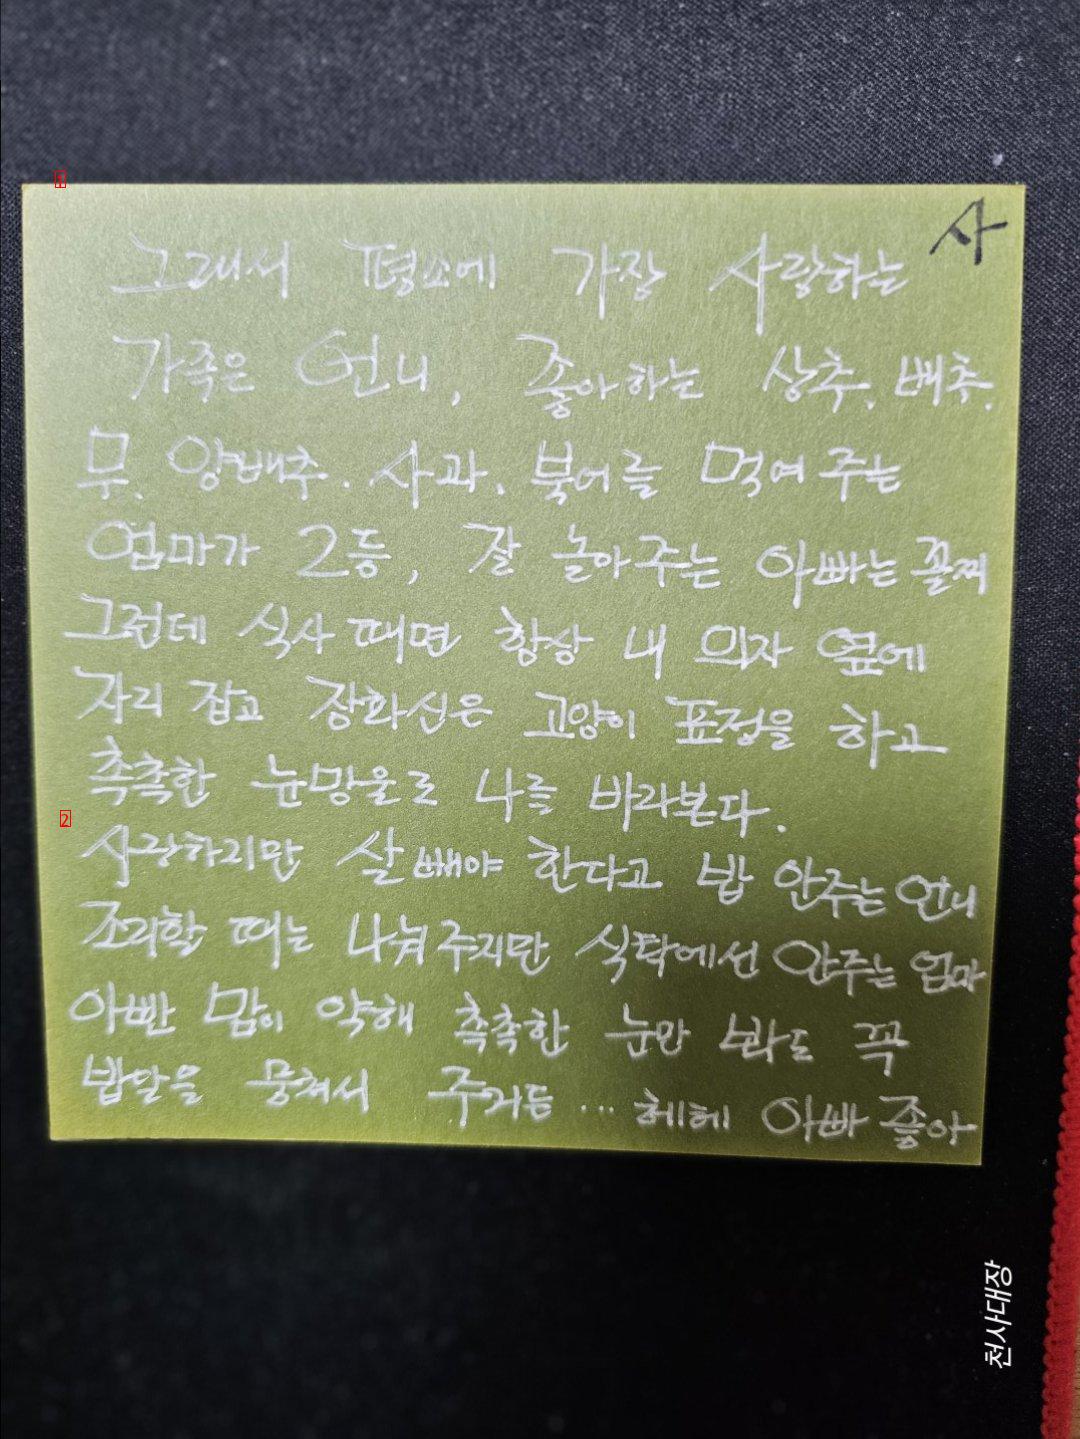 1
사
그래서 평소에 가장 사랑하는
가족은 언니, 좋아하는 상추, 배추,
무, 양배추, 사과, 북어를 먹여주는
엄마가 2등, 잘 놀아주는 아빠는 꼴찌
그런데 식사 때면 항상 내 의자 옆에
자리 잡고 장화신은 고양이 표정을 하고
촉촉한 눈망울로 나를 바라본다.
2
사랑하지만 살 빼야 한다고 밥 안주는 언니
조리할 때는 나눠 주지만 식탁에선 안주는 엄마
아빤 맘이 약해 촉촉한 눈만 봐도 꼭
밥알을 뭉쳐서 주거든 ... 헤헤 아빠 좋아
천사대장